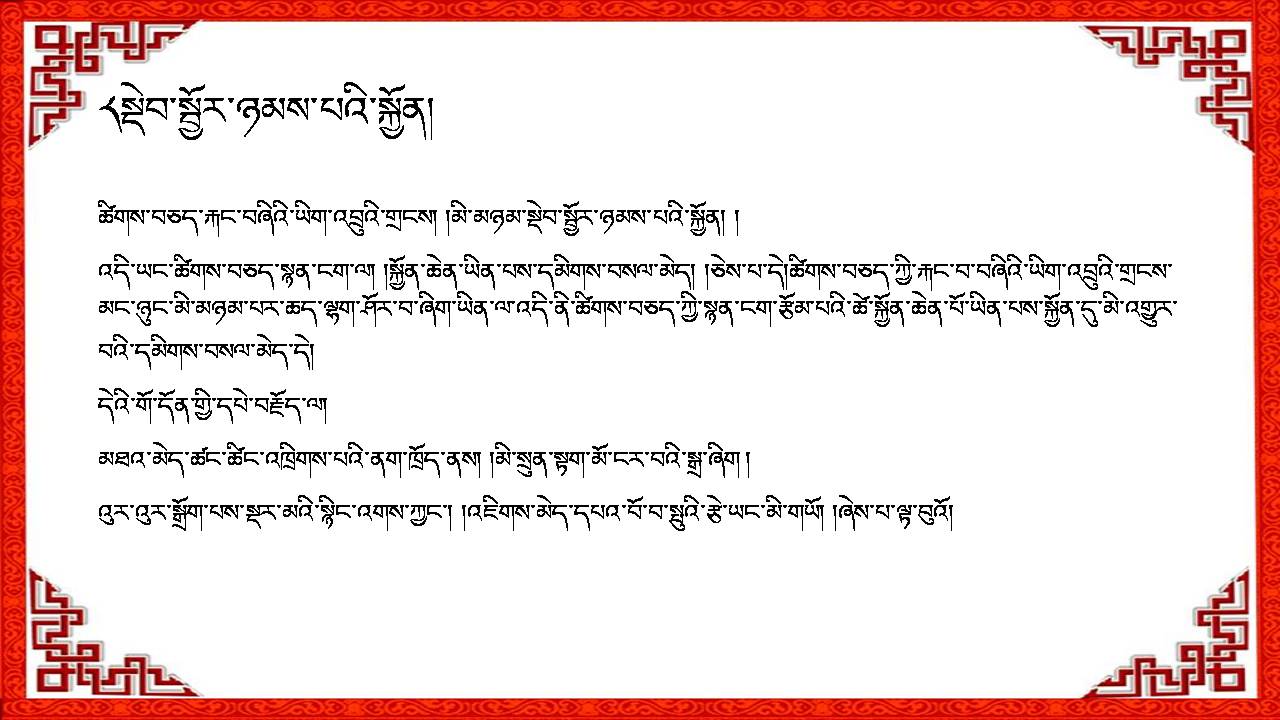 ༨སྡེབ་སྦྱོར་ཉམས་པའི་སྐྱོན།
ཚིགས་བཅད་རྐང་བཞིའི་ཡིག་འབྲུའི་གྲངས། །མི་མཉམ་སྡེབ་སྦྱོར་ཉམས་པའི་སྐྱོན། །
འདི་ཡང་ཚིགས་བཅད་སྙན་ངག་ལ། །སྐྱོན་ཆེན་ཡིན་པས་དམིགས་བསལ་མེད། །ཅེས་པ་དེ།ཚིགས་བཅད་ཀྱི་རྐང་བ་བཞིའི་ཡིག་འབྲུའི་གྲངས་
མང་ཉུང་མི་མཉམ་པར་ཆད་ལྷག་ཤོར་བ་ཞིག་ཡིན་ལ་འདི་ནི་ཚིགས་བཅད་ཀྱི་སྙན་ངག་རྩོམ་པའི་ཚེ་སྐྱོན་ཆེན་པོ་ཡིན་པས་སྐྱོན་དུ་མི་འགྱུར་
བའི་དམིགས་བསལ་མེད་དེ།
དེའི་གོ་དོན་གྱི་དཔེ་བརྗོད་ལ།
མཐའ་མེད་ཚང་ཚིང་འཁྲིགས་པའི་ནག་ཁྲོད་ནས། །མི་སྲུན་སྟག་མོ་ངར་བའི་སྒྲ་ཞིག །
འུར་འུར་སྒྲོག་པས་སྡར་མའི་སྙིང་འགས་ཀྱང་། །འཇིགས་མེད་དཔའ་བོ་བ་སྤུའི་རྩེ་ཡང་མི་གཡོ། །ཞེས་པ་ལྟ་བུའོ།